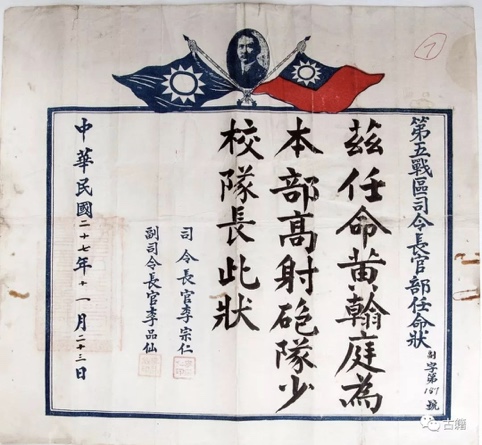 7
第五戰區司令長官部任命狀
字第187號
茲任命黃翰庭為
本部高射砲隊少
校隊長此狀
司令長官李宗仁
副司令長官李品仙
中華民國二十七年十一月二十三日
古籍